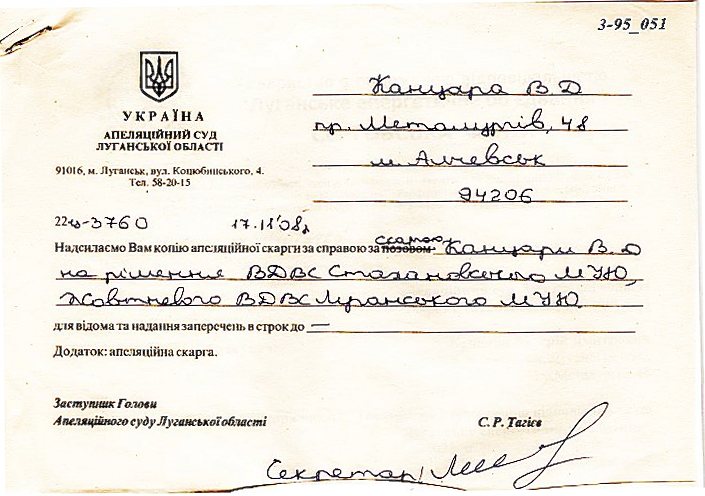 3-95_051
УКРАЇНА
АПЕЛЯЦІЙНИЙ СУД
ЛУГАНСЬКОЇ ОБЛАСТІ
91016, м. Луганськ, вул. Коцюбинського, 4.
Тел. 58-20-15
Канцара В Д
пр. Металургів, 48
м. Алчевськ
94206
22ц-3760 17.11'08р
Надсилаємо Вам копію апеляційної скарги за справою за позовом скаргою Канцари В.Д
на рішення ВДВС Стахановського МУЮ,
Жовтневого ВДВС Луганського МУЮ.
для відома та надання заперечень в строк до —
Додаток: апеляційна скарга.
Заступник Голови
Апеляційного суду Луганської області С. Р. Тагієв
Секретарі